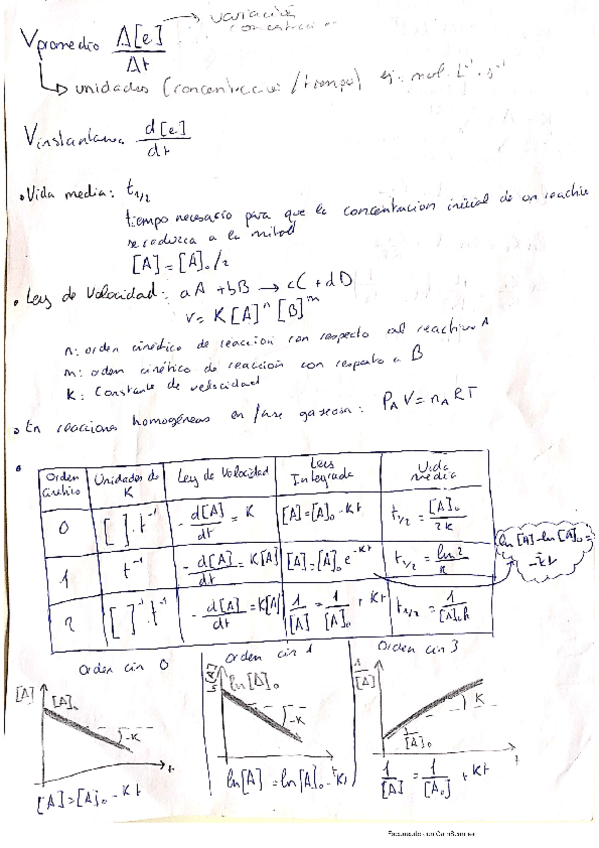 Vpromedio Δ[e]/Δt → variación concentración
↳ unidades (concentración/tiempo) ej. mol·L⁻¹·s⁻¹
Vinstantanea d[e]/dt
• Vida media: t1/2
tiempo necesario para que la concentracion inicial de un reactivo
se reduzca a la mitad
[A] = [A]₀/2
• Ley de Velocidad: aA + bB → cC + dD
v = K[A]ⁿ[B]ᵐ
n: orden cinético de reacción con respecto al reactivo A
m: orden cinético de reacción con respecto a B
K: Constante de velocidad
• En reacciones homogéneas en fase gaseosa: P_A V = n_A RT
Orden cinético | Unidades de K | Ley de Velocidad | Leyes Integrada | Vida media
0 | [ ]·t⁻¹ | -d[A]/dt = K | [A]=[A]₀-Kt | t1/2 = [A]₀/2k
1 | t⁻¹ | -d[A]/dt = K[A] | [A]=[A]₀e^-Kt | t1/2 = ln2/k
ln[A]-ln[A]₀=
-kt
2 | [ ]⁻¹·t⁻¹ | -d[A]/dt = K[A] | 1/[A] = 1/[A]₀ + Kt | t1/2 = 1/[A]₀k
Orden cin 0
[A] [A]₀
-K
t
[A]=[A]₀-Kt
Orden cin 1
ln[A] ln[A]₀
-K
t
ln[A] = ln[A]₀-Kt
Orden cin 3
1/[A]
K
1/[A]₀
t
1/[A] = 1/[A₀] + Kt
Escaneado con CamScanner